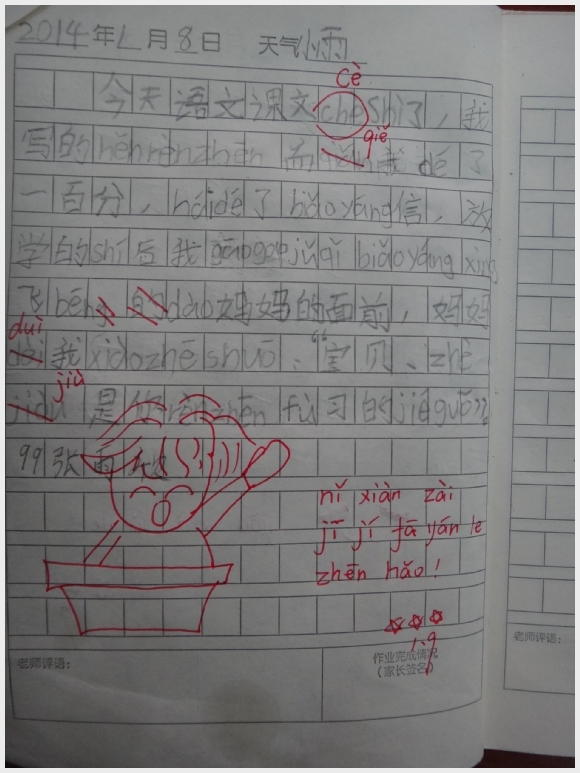 2014年1月8日 天气小雨
今天语文课文cheshì了，我
cè
写的hěnrènzhēn而qiě我dé了
qiě
一百分，háidé了biǎoyáng信，放
学的shí后我gāogāojǔqǐbiǎoyángxìng
飞bēn dào妈妈的面前，妈妈
duì
我xiàozhe shuō："宝贝、zhè
jiù
jiù是你rènzhēn fù习的jiéguǒ"
99张雨
nǐ xiàn zài
jī jí fā yán le
zhēn hǎo！
1.9
老师评语：
作业完成情况
（家长签名）
老师评语：